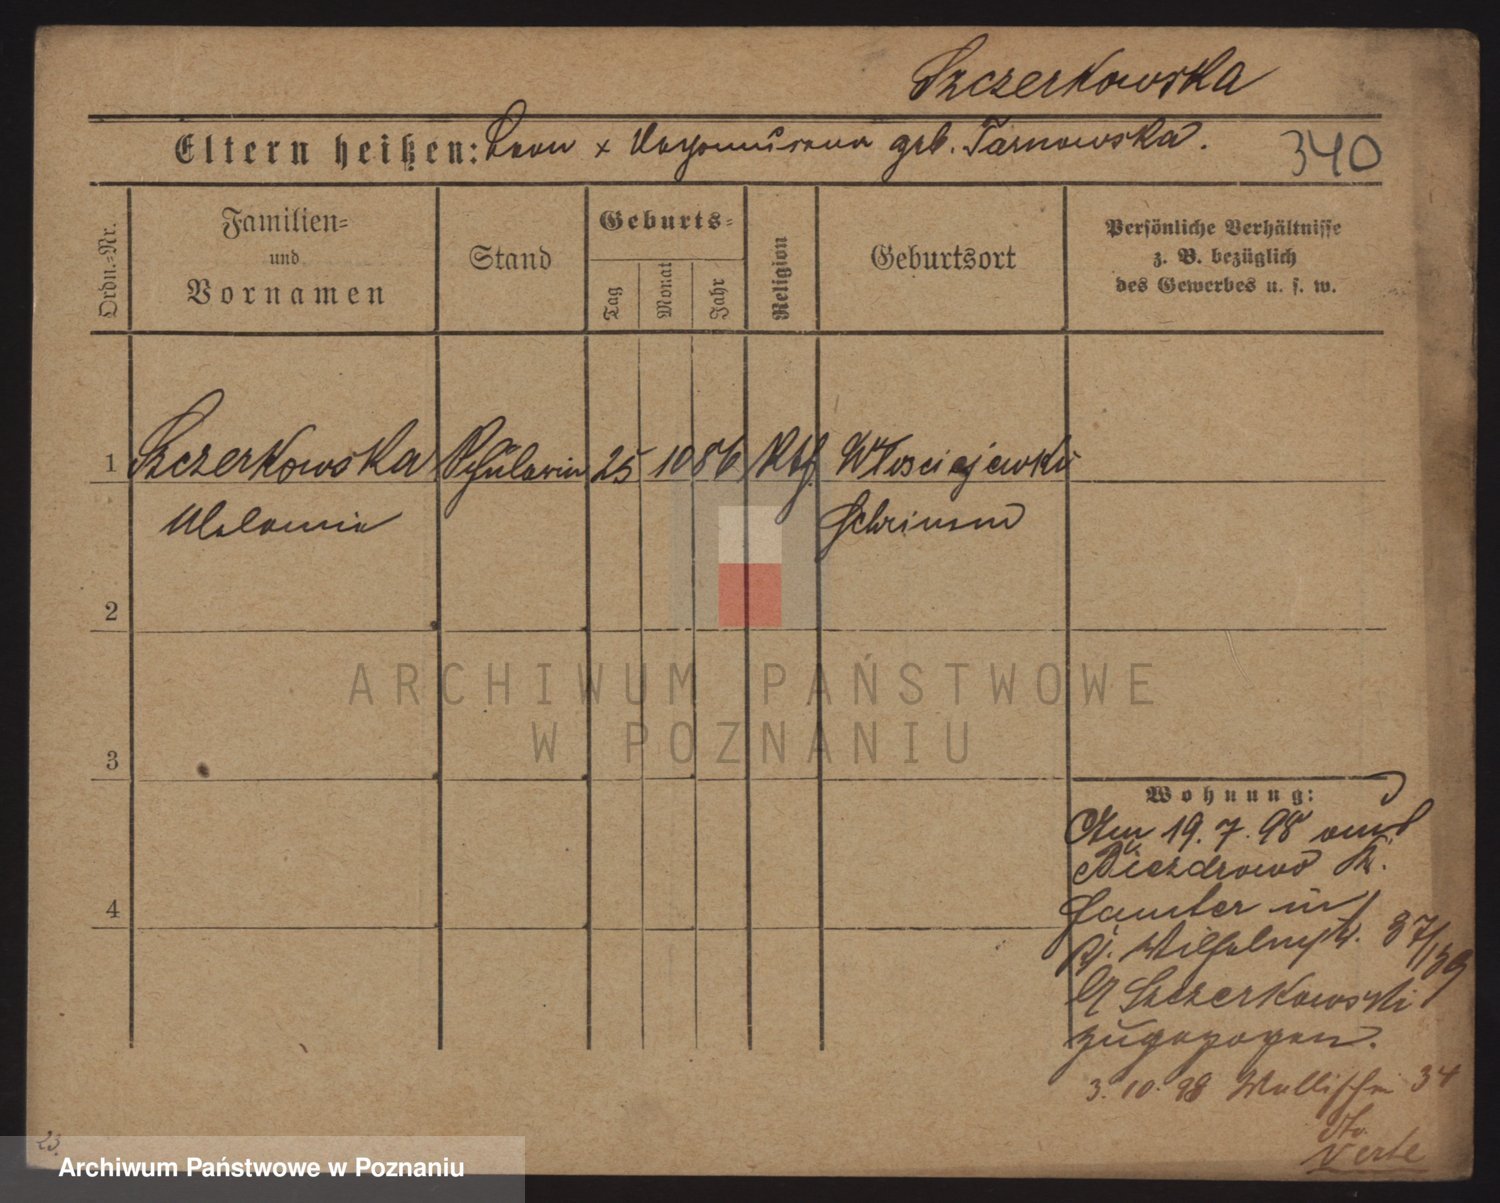 Szczerkowska
Eltern heißen: Leon × Nepomucena geb. Tarnowska.
340
Ordn.-Nr.
Familien-
und
Vornamen
Stand
Geburts-
Tag
Monat
Jahr
Religion
Geburtsort
Persönliche Verhältnisse
z. B. bezüglich
des Gewerbes u. s. w.
1
Szczerkowska Schülerin 25 10 86 Kth Włosciejewki
Melania Schrimm
2
3
4
ARCHIWUM PAŃSTWOWE
W POZNANIU
Wohnung:
Am 19.7.98 aus
Biezdrowo Kr.
Samter
37/139
Szczerkowski
zugezogen.
3.10.98 Wallischei 34
Verte
23.
Archiwum Państwowe w Poznaniu